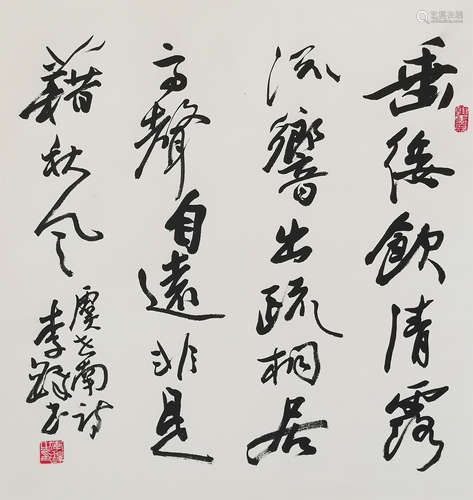 垂緌飲清露
流響出疏桐居
高聲自遠非是
藉秋風
虞世南詩
李鐸书